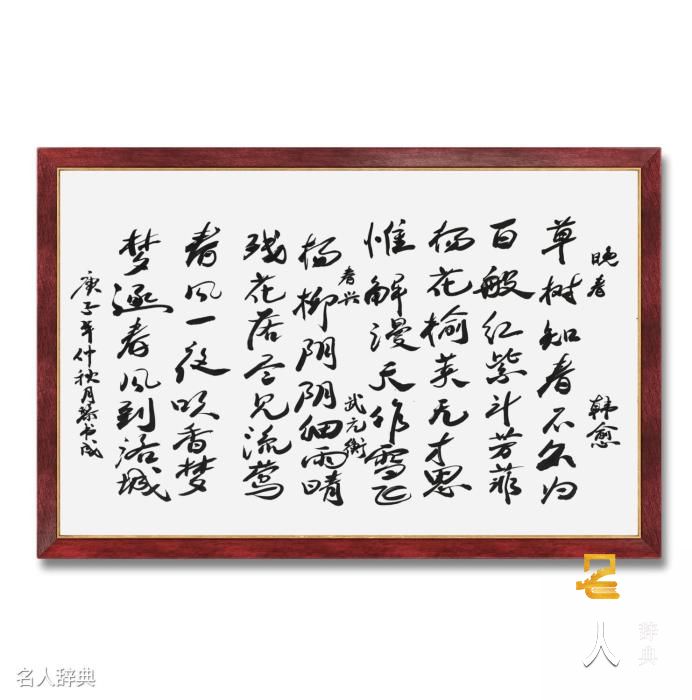 晚春 韩愈
草树知春不久归
百般红紫斗芳菲
杨花榆荚无才思
惟解漫天作雪飞
春兴 武元衡
杨柳阴阴细雨晴
残花落尽见流莺
春风一夜吹香梦
梦逐春风到洛城
庚子年仲秋月
名人辞典
名人辞典